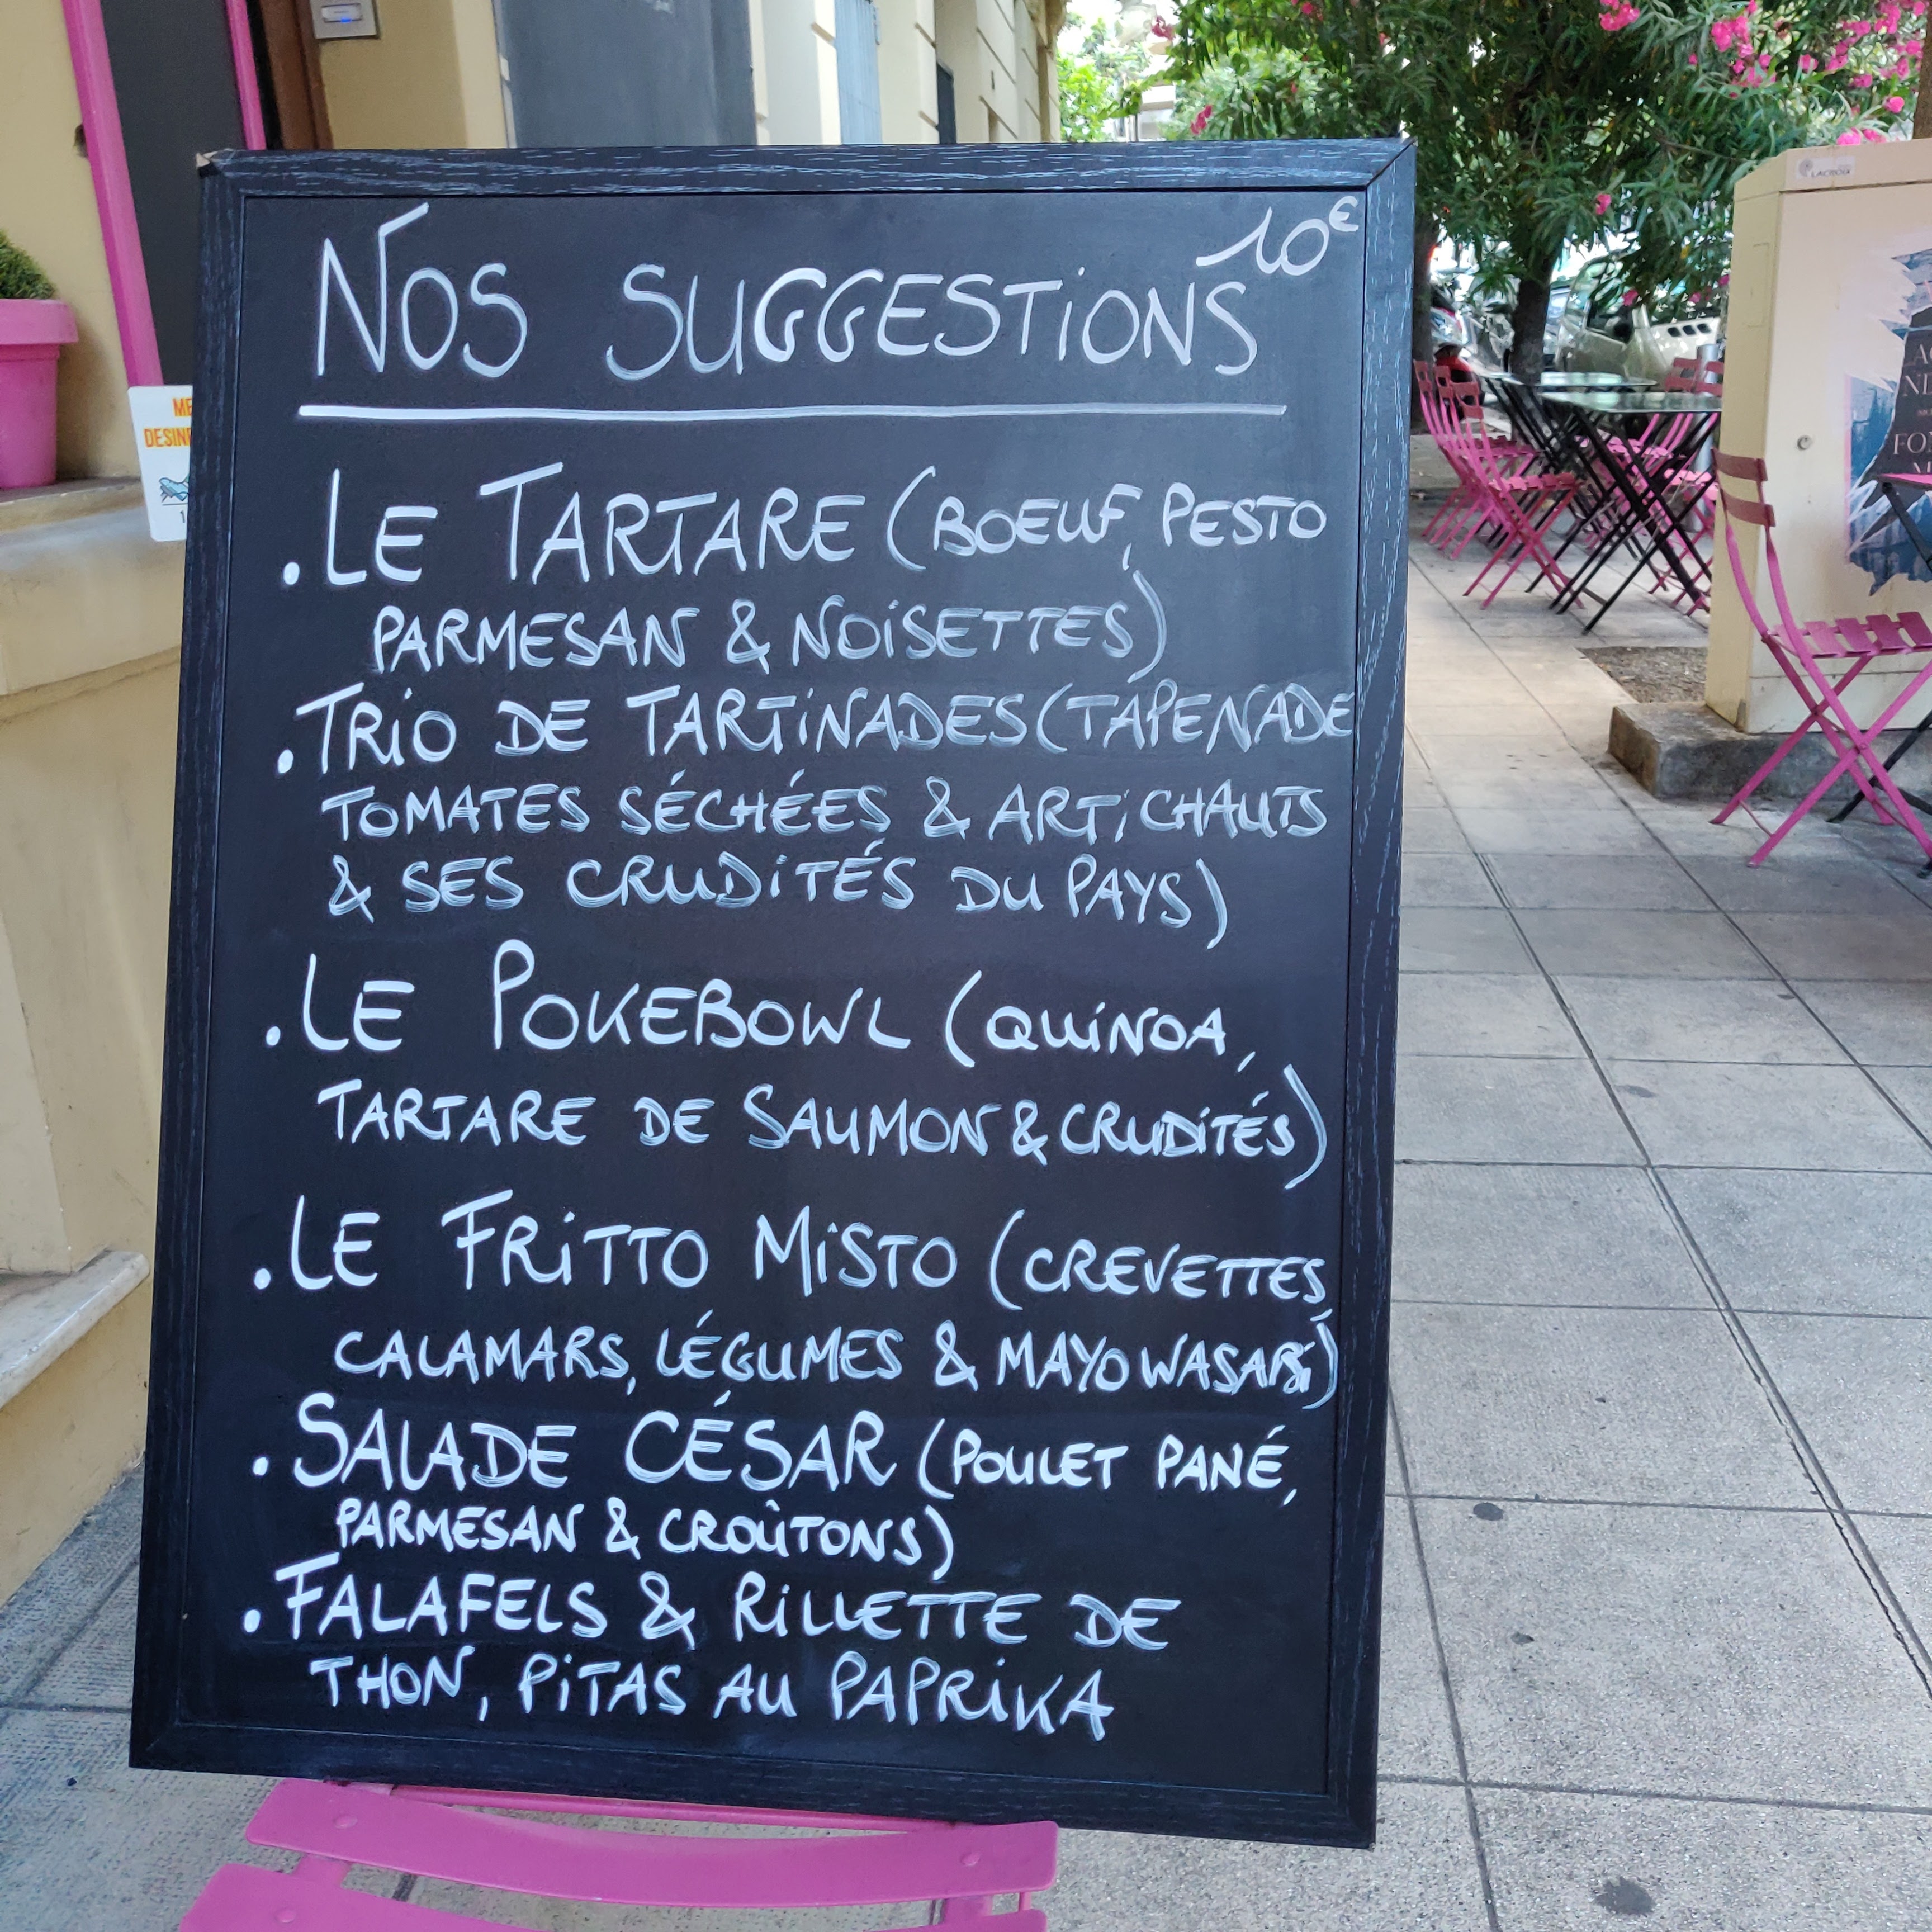 10€
NOS SUGGESTiONS
. LE TARTARE (BOEUF, PESTO
PARMESAN & NOiSETTES)
. TRiO DE TARTiNADES (TAPENADE
TOMATES SÉCHÉES & ARTiCHAUTS
& SES CRUDiTÉS DU PAYS)
. LE POKEBOWL (QUiNOA,
TARTARE DE SAUMON & CRUDiTÉS)
. LE FRiTTO MiSTO (CREVETTES,
CALAMARS, LÉGUMES & MAYO WASABi)
. SALADE CÉSAR (POULET PANÉ,
PARMESAN & CROÛTONS)
. FALAFELS & RiLLETTE DE
THON, PiTAS AU PAPRiKA
LACROIX